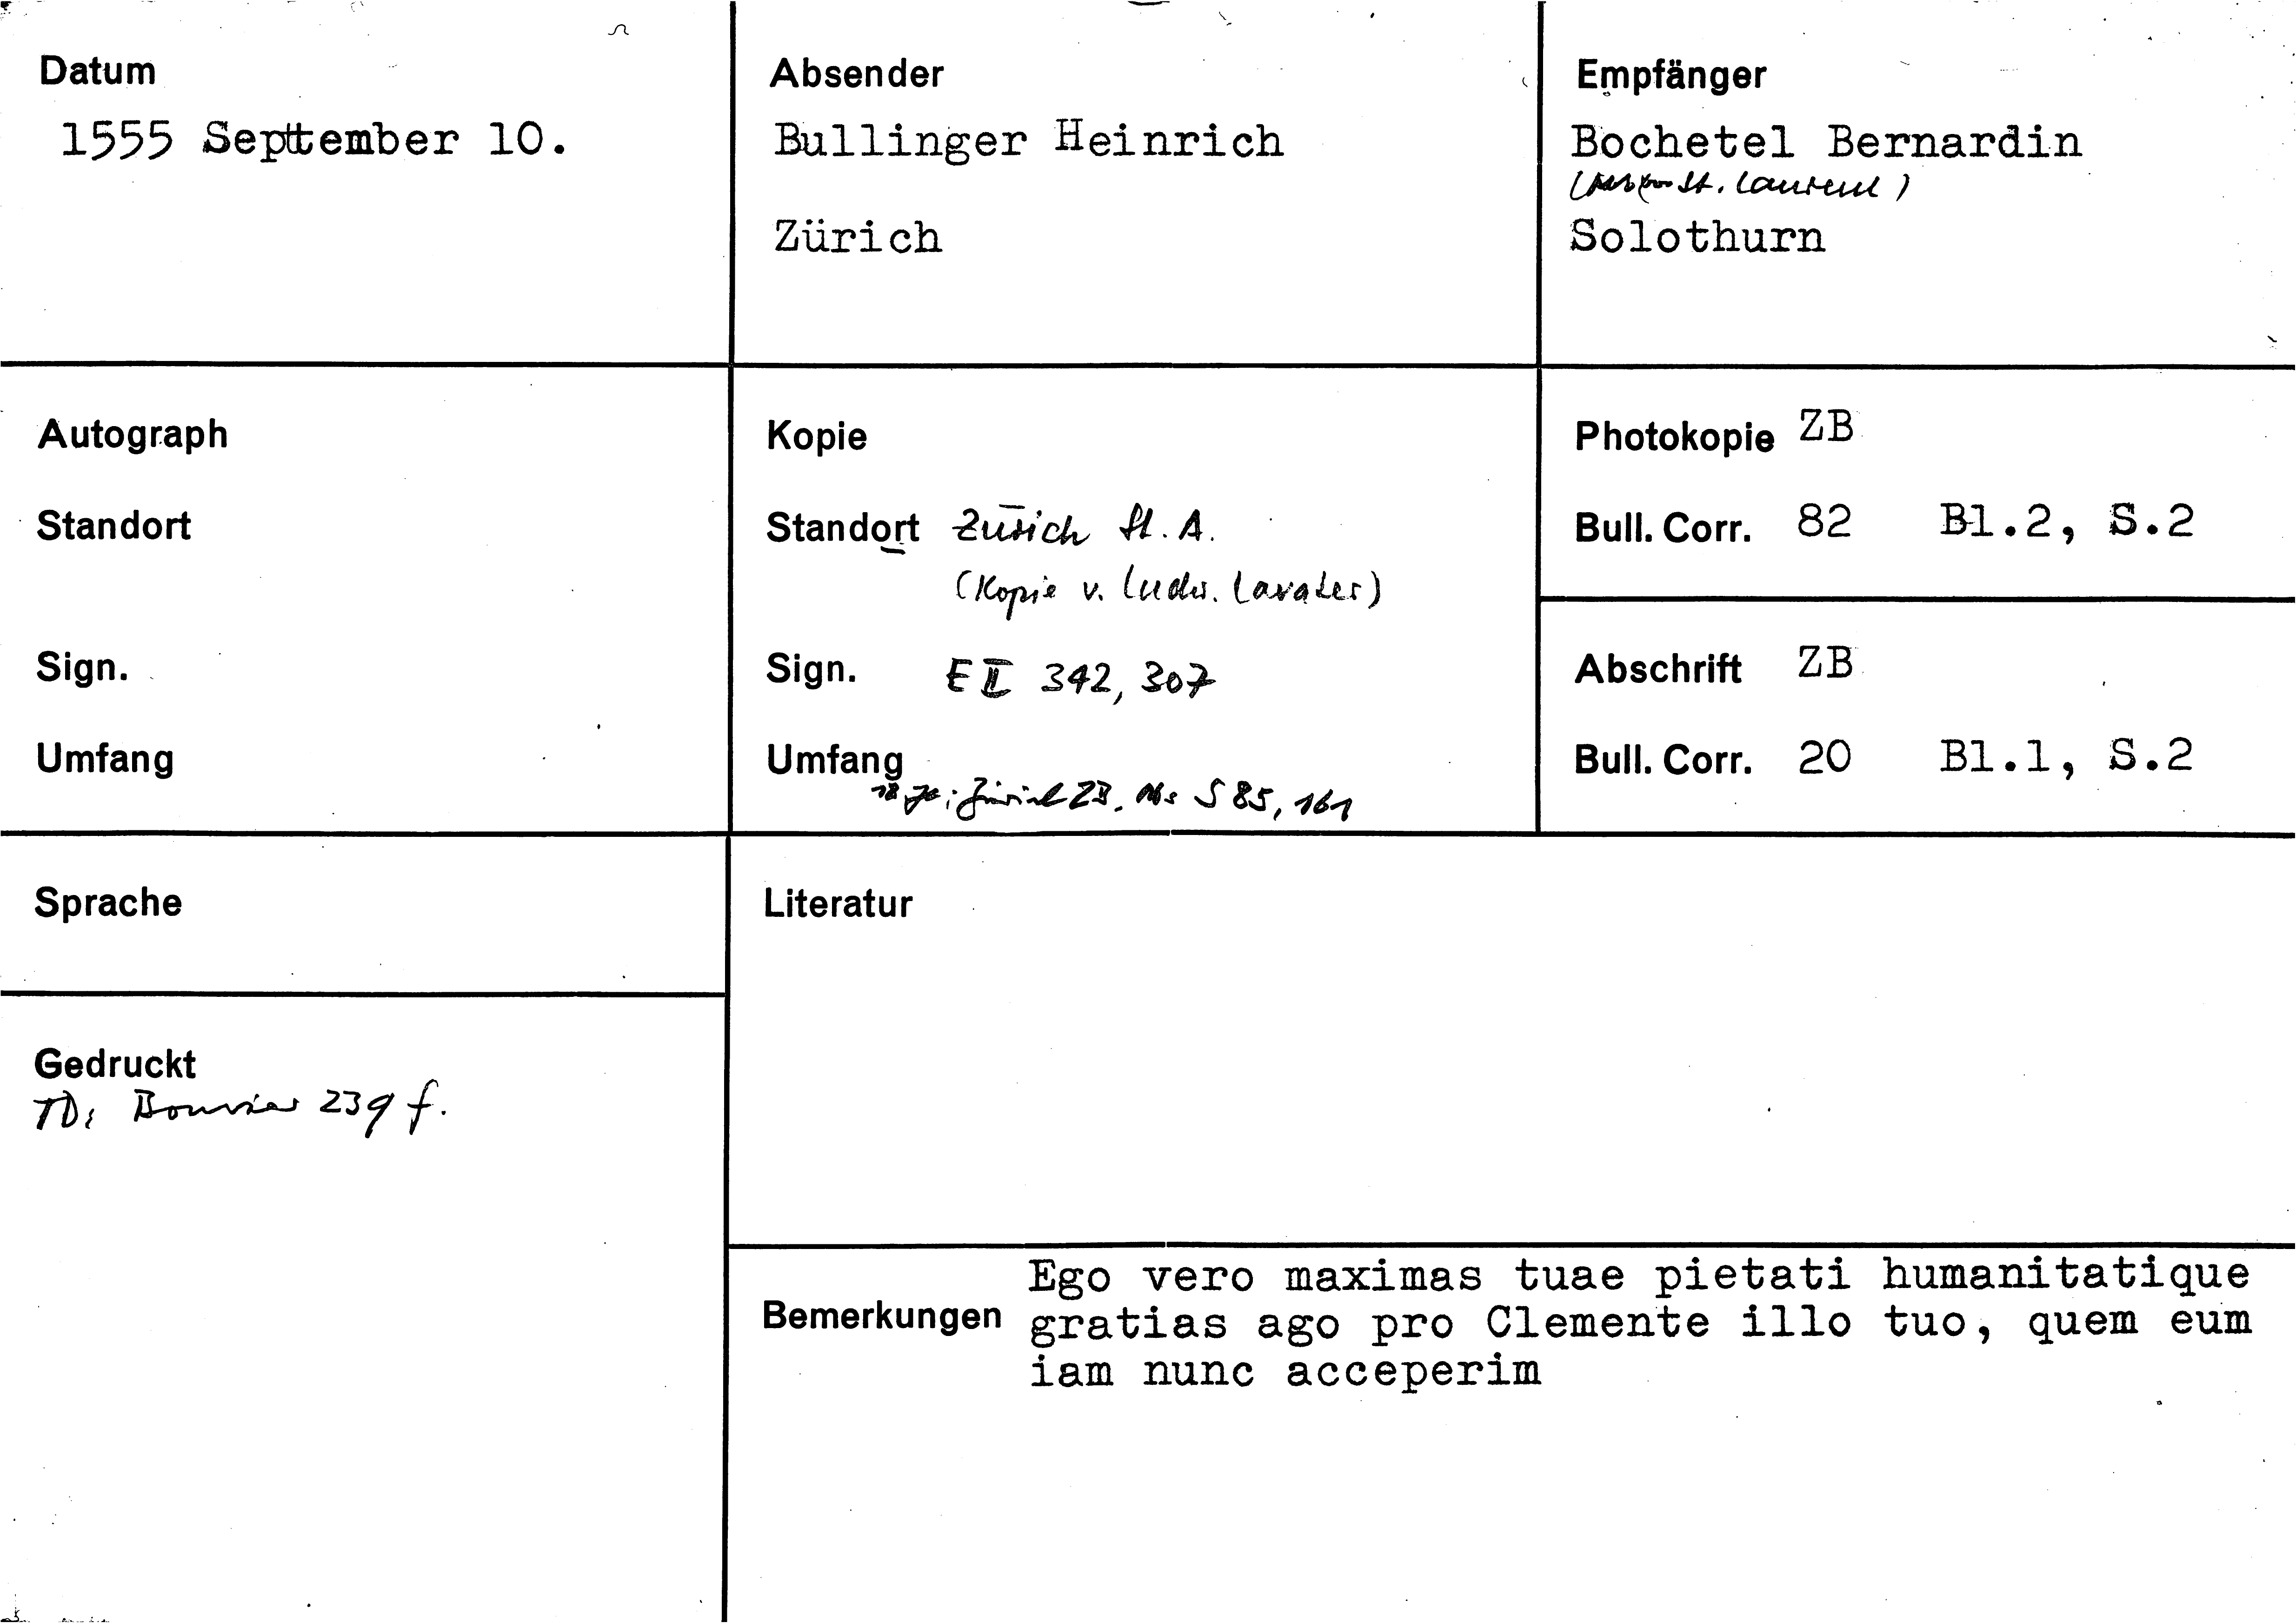 Datum
1555 September 10.
Absender
Bullinger Heinrich
Zürich
Empfänger
Bochetel Bernardin
(Abt von St. Laurent)
Solothurn
Autograph
Standort
Sign.
Umfang
Kopie
Standort Zürich St. A.
(Kopie v. Ludw. Lavater)
Sign. E II 342, 307
Umfang
18. Jh.: Zürich ZB, Ms S 85, 161
Photokopie ZB
Bull. Corr. 82 Bl.2, S.2
Abschrift ZB
Bull. Corr. 20 Bl.1, S.2
Sprache
Gedruckt
TD: Bouvier 239 f.
Literatur
Bemerkungen
Ego vero maximas tuae pietati humanitatique
gratias ago pro Clemente illo tuo, quem eum
iam nunc acceperim